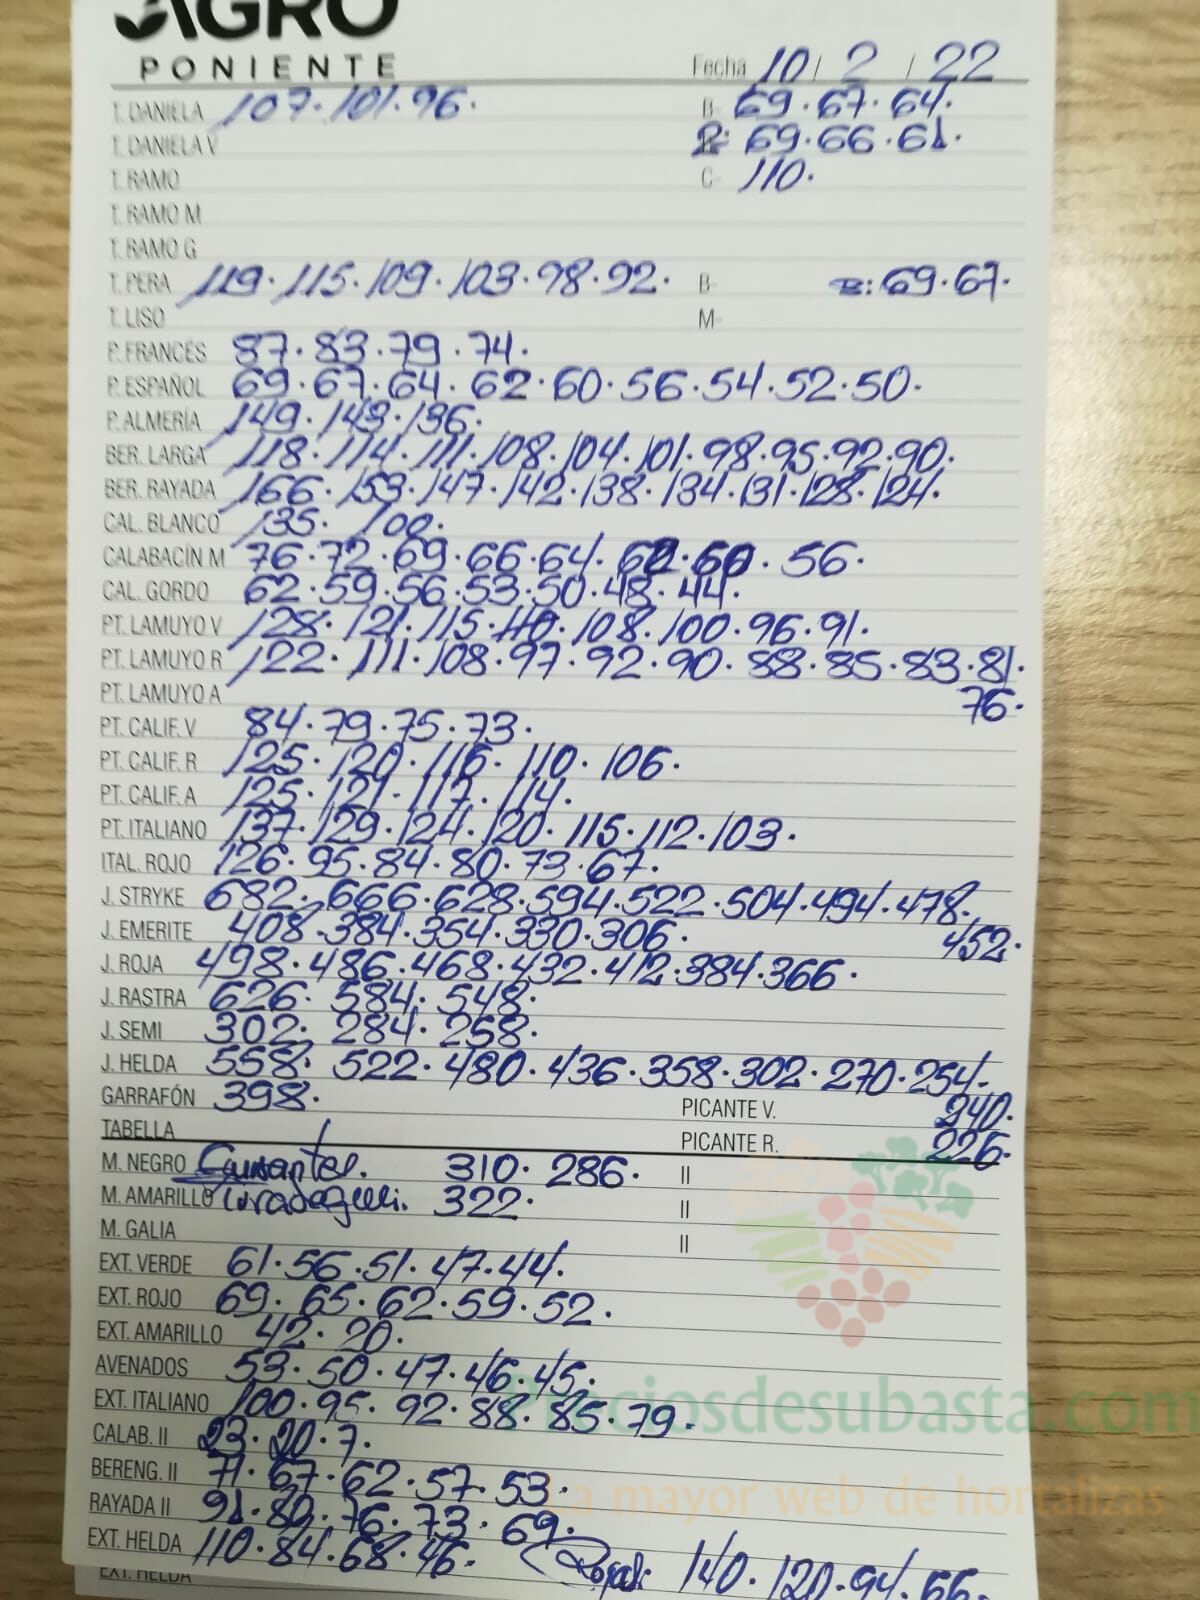 AGRO
PONIENTE
Fecha 10/ 2 / 22
T. DANIELA 107. 101. 96. B- 69. 67. 64.
T. DANIELA V 2: 69. 66. 61.
T. RAMO C- 110.
T. RAMO M
T. RAMO G
T. PERA 119. 115. 109. 103. 98. 92. B- B: 69. 67.
T. LISO M-
P. FRANCÉS 87. 83. 79. 74.
P. ESPAÑOL 69. 67. 64. 62. 60. 56. 54. 52. 50.
P. ALMERÍA 149. 143. 136.
BER. LARGA 118. 114. 111. 108. 104. 101. 98. 95. 92. 90.
BER. RAYADA 166. 153. 147. 142. 138. 134. 131. 128. 124.
CAL. BLANCO 135. 100.
CALABACÍN M 76. 72. 69. 66. 64. 62. 60. 56.
CAL. GORDO 62. 59. 56. 53. 50. 48. 44.
PT. LAMUYO V 128. 121. 115. 110. 108. 100. 96. 91.
PT. LAMUYO R 122. 111. 108. 97. 92. 90. 88. 85. 83. 81.
PT. LAMUYO A 76.
PT. CALIF. V 84. 79. 75. 73.
PT. CALIF. R 125. 120. 116. 110. 106.
PT. CALIF. A 125. 121. 117. 114.
PT. ITALIANO 137. 129. 124. 120. 115. 112. 103.
ITAL. ROJO 126. 95. 84. 80. 73. 67.
J. STRYKE 682. 666. 628. 594. 522. 504. 494. 478.
J. EMERITE 408. 384. 354. 330. 306. 452.
J. ROJA 498. 486. 468. 432. 412. 384. 366.
J. RASTRA 626. 584. 548.
J. SEMI 302. 284. 258.
J. HELDA 558. 522. 480. 436. 358. 302. 270. 254.
GARRAFÓN 398. PICANTE V. 240.
TABELLA PICANTE R. 226.
M. NEGRO Guisantes. 310. 286. II
M. AMARILLO 322. II
M. GALIA II
EXT. VERDE 61. 56. 51. 47. 44.
EXT. ROJO 69. 65. 62. 59. 52.
EXT. AMARILLO 42. 20.
AVENADOS 53. 50. 47. 46. 45.
EXT. ITALIANO 100. 95. 92. 88. 85. 79.
Preciosdesubasta.com
CALAB. II 23. 20. 7.
BERENG. II 71. 67. 62. 57. 53.
La mayor web de hortalizas
RAYADA II 91. 80. 76. 73. 69.
EXT. HELDA 110. 84. 68. 46. Roja: 140. 120. 94. 66.
EXT. HELDA